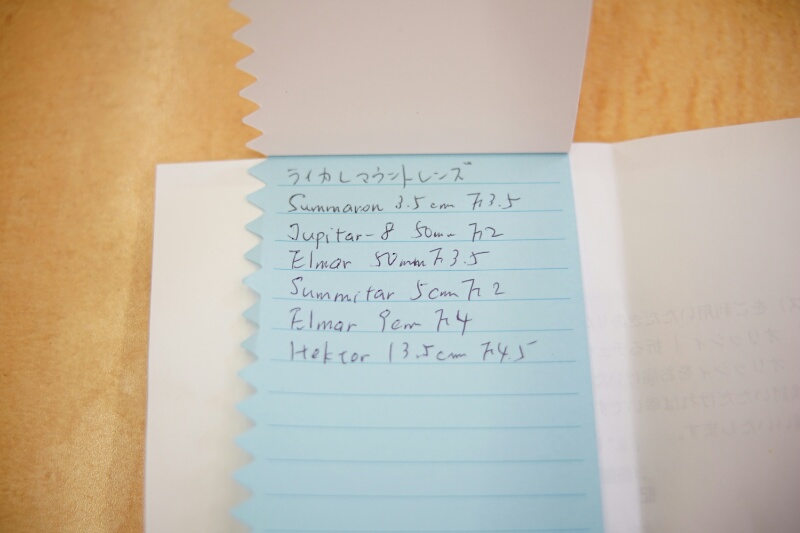 ライカLマウントレンズ
Summaron 3.5cm f3.5
Jupitar-8 50mm f2
Elmar 50mm f3.5
Summitar 5cm f2
Elmar 9cm f4
Hektor 13.5cm f4.5